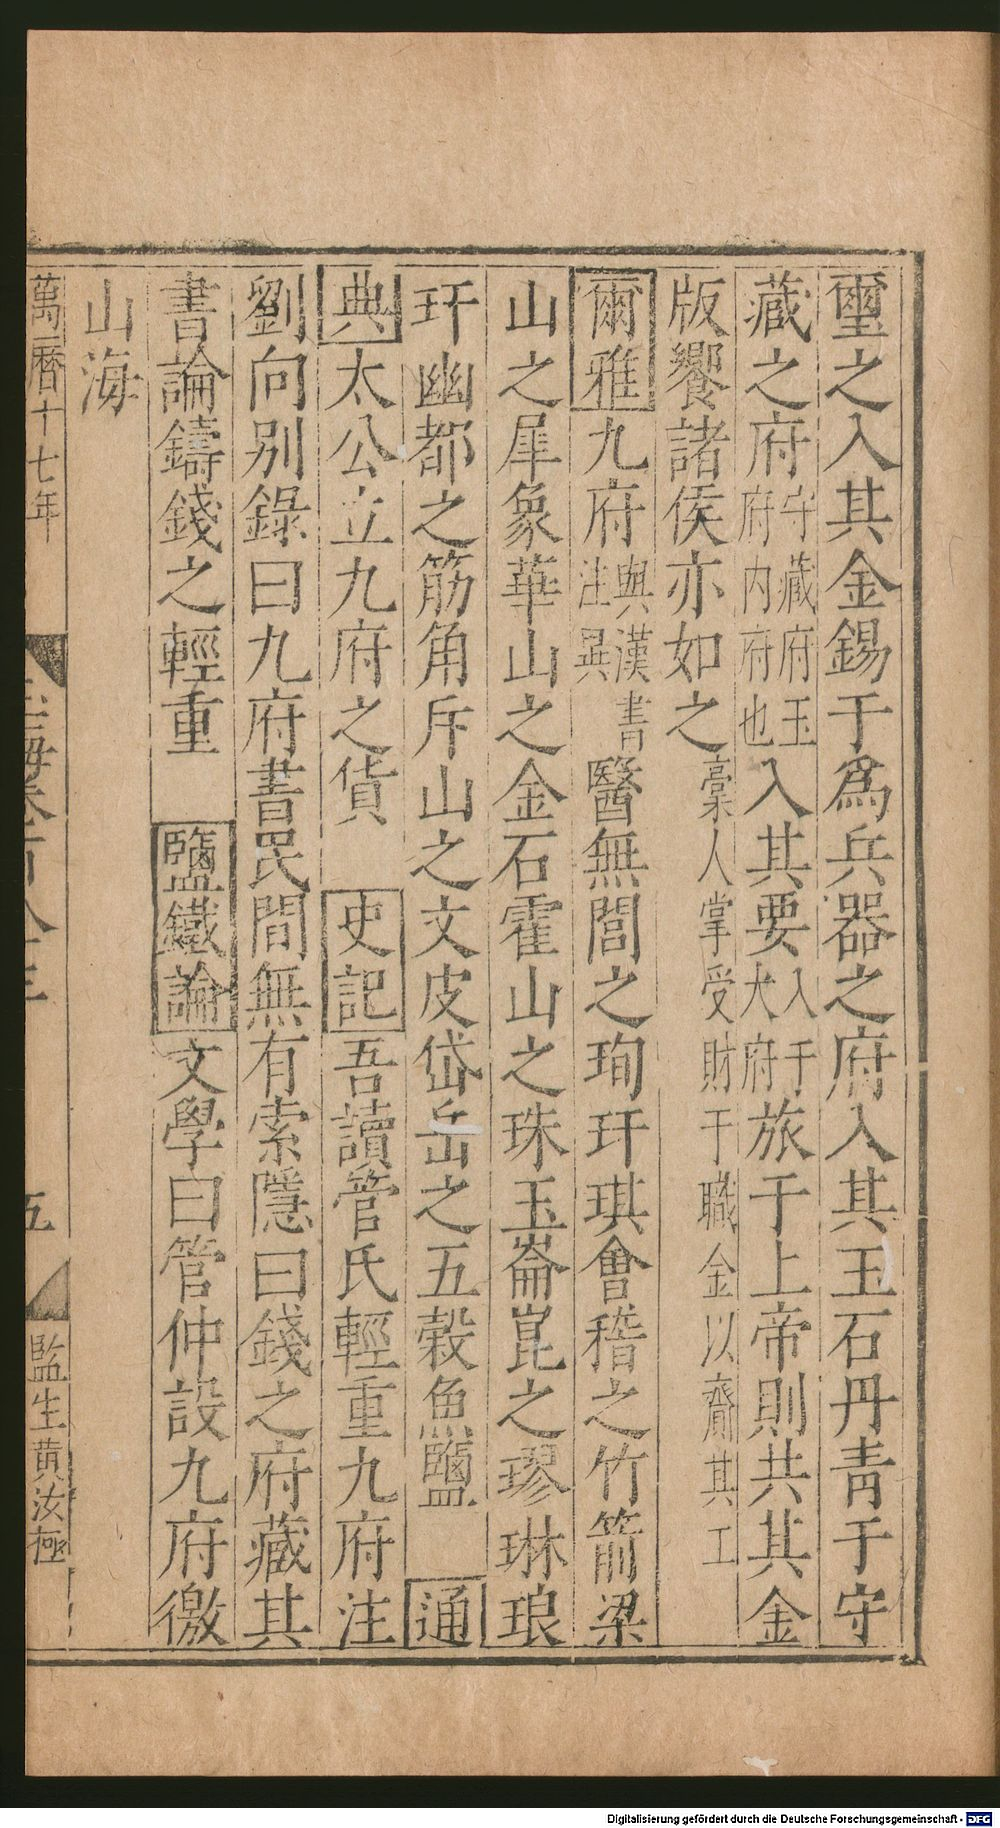 璽之入其金錫于為兵器之府入其玉石丹青于守
藏之府守藏府玉府內府也入其要入于大府旅于上帝則共其金
版饗諸侯亦如之稾人掌受財于職金以齎其工
爾雅九府與漢書注異醫無閭之珣玗琪會稽之竹箭梁
山之犀象華山之金石霍山之珠玉崙崑之璆琳琅
玕幽都之筋角斥山之文皮岱岳之五穀魚鹽 通
典太公立九府之貨 史記吾讀管氏輕重九府注
劉向别錄曰九府書民間無有索隱曰錢之府藏其
書論鑄錢之輕重 鹽鐵論文學曰管仲設九府徼
山海
萬曆十七年
玉海卷百八十
五
監生黃汝極
Digitalisierung gefördert durch die Deutsche Forschungsgemeinschaft - DFG